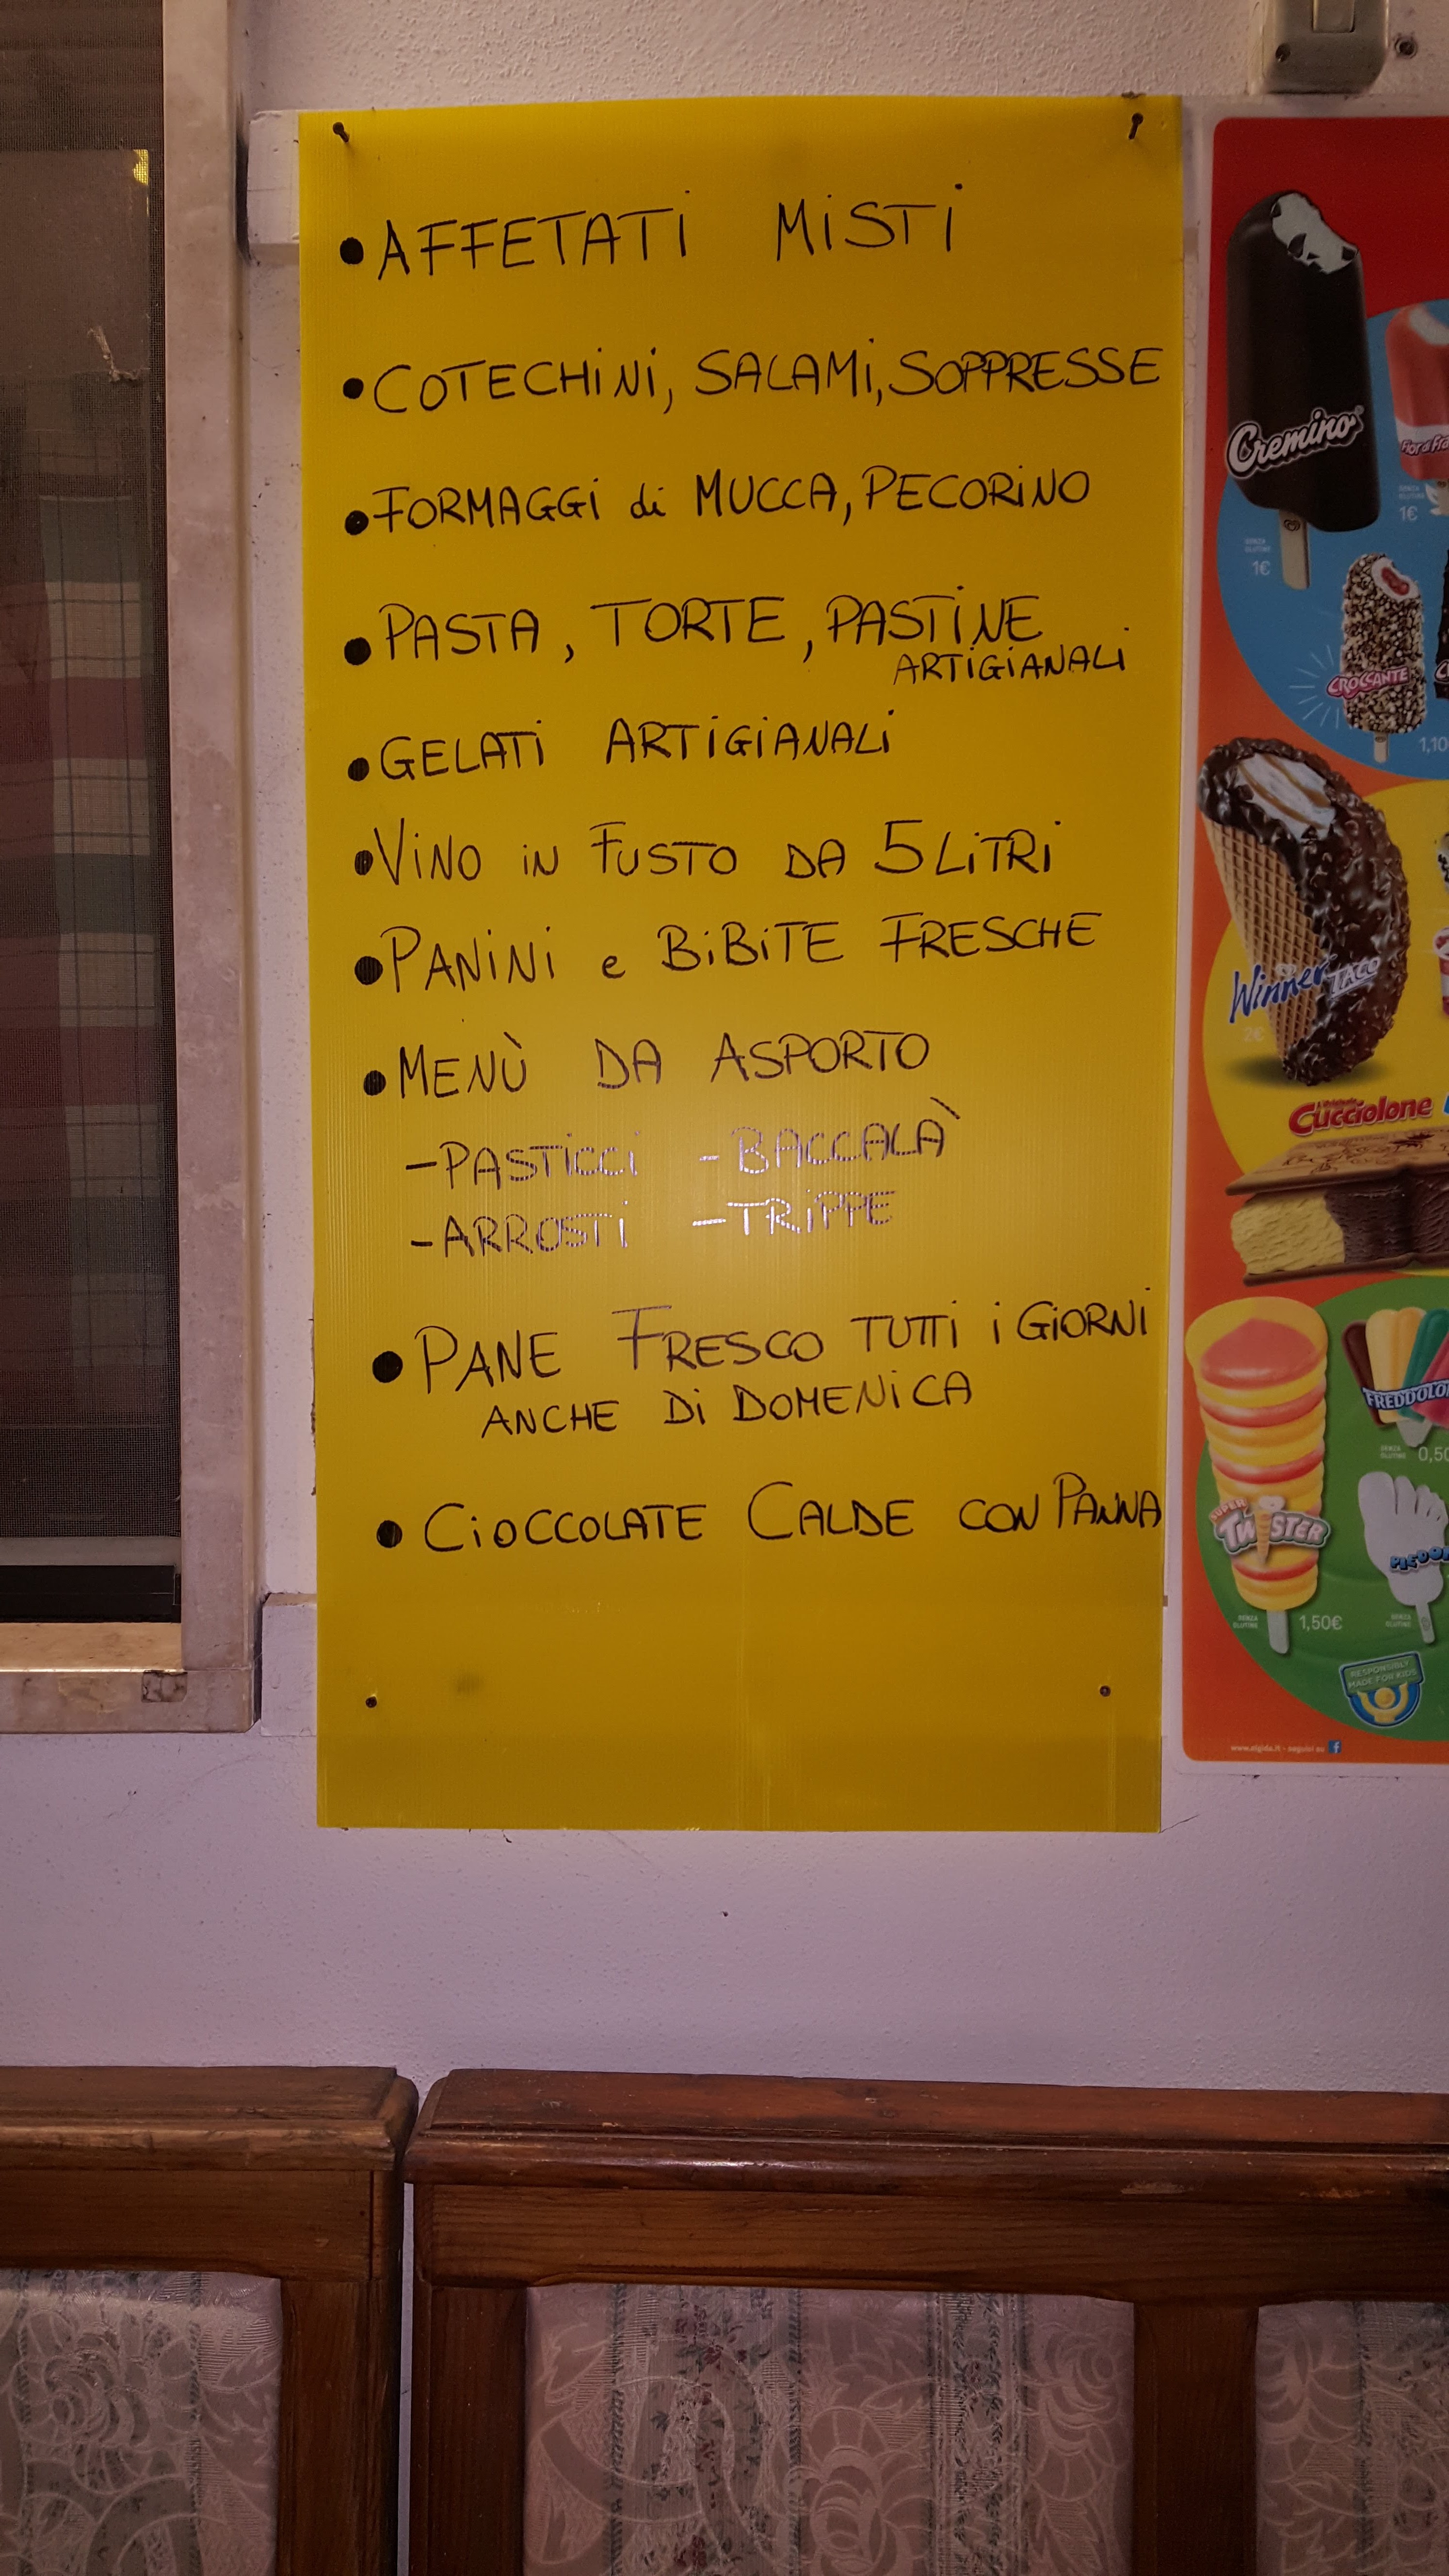 •AFFETATI MISTI
•COTECHINI, SALAMI, SOPPRESSE
•FORMAGGI di MUCCA, PECORINO
•PASTA, TORTE, PASTINE
ARTIGIANALI
•GELATI ARTIGIANALI
•VINO IN FUSTO DA 5 LITRI
•PANINI e BIBITE FRESCHE
•MENÙ DA ASPORTO
-PASTICCI -BACCALÀ
-ARROSTI -TRIPPE
•PANE FRESCO TUTTI i GIORNI
ANCHE DI DOMENICA
•CIOCCOLATE CALDE CON PANNA
Cremino
SENZA GLUTINE
1€
1€
CROCCANTE
1,10
Winner TACO
2€
Cucciolone
FREDDOLO
SENZA GLUTINE
0,50
SUPER TWISTER
SENZA GLUTINE
1,50€
SENZA GLUTINE
RESPONSIBLY
MADE FOR KIDS
www.algida.it - seguici su f